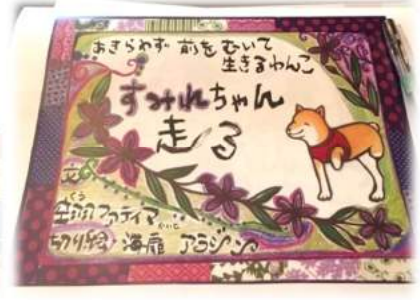 あきらめず 前を むいて
生きるわんこ
すみれちゃん
走る
文
くう
ファティマ
かいと
切り絵 海扉 アラジン